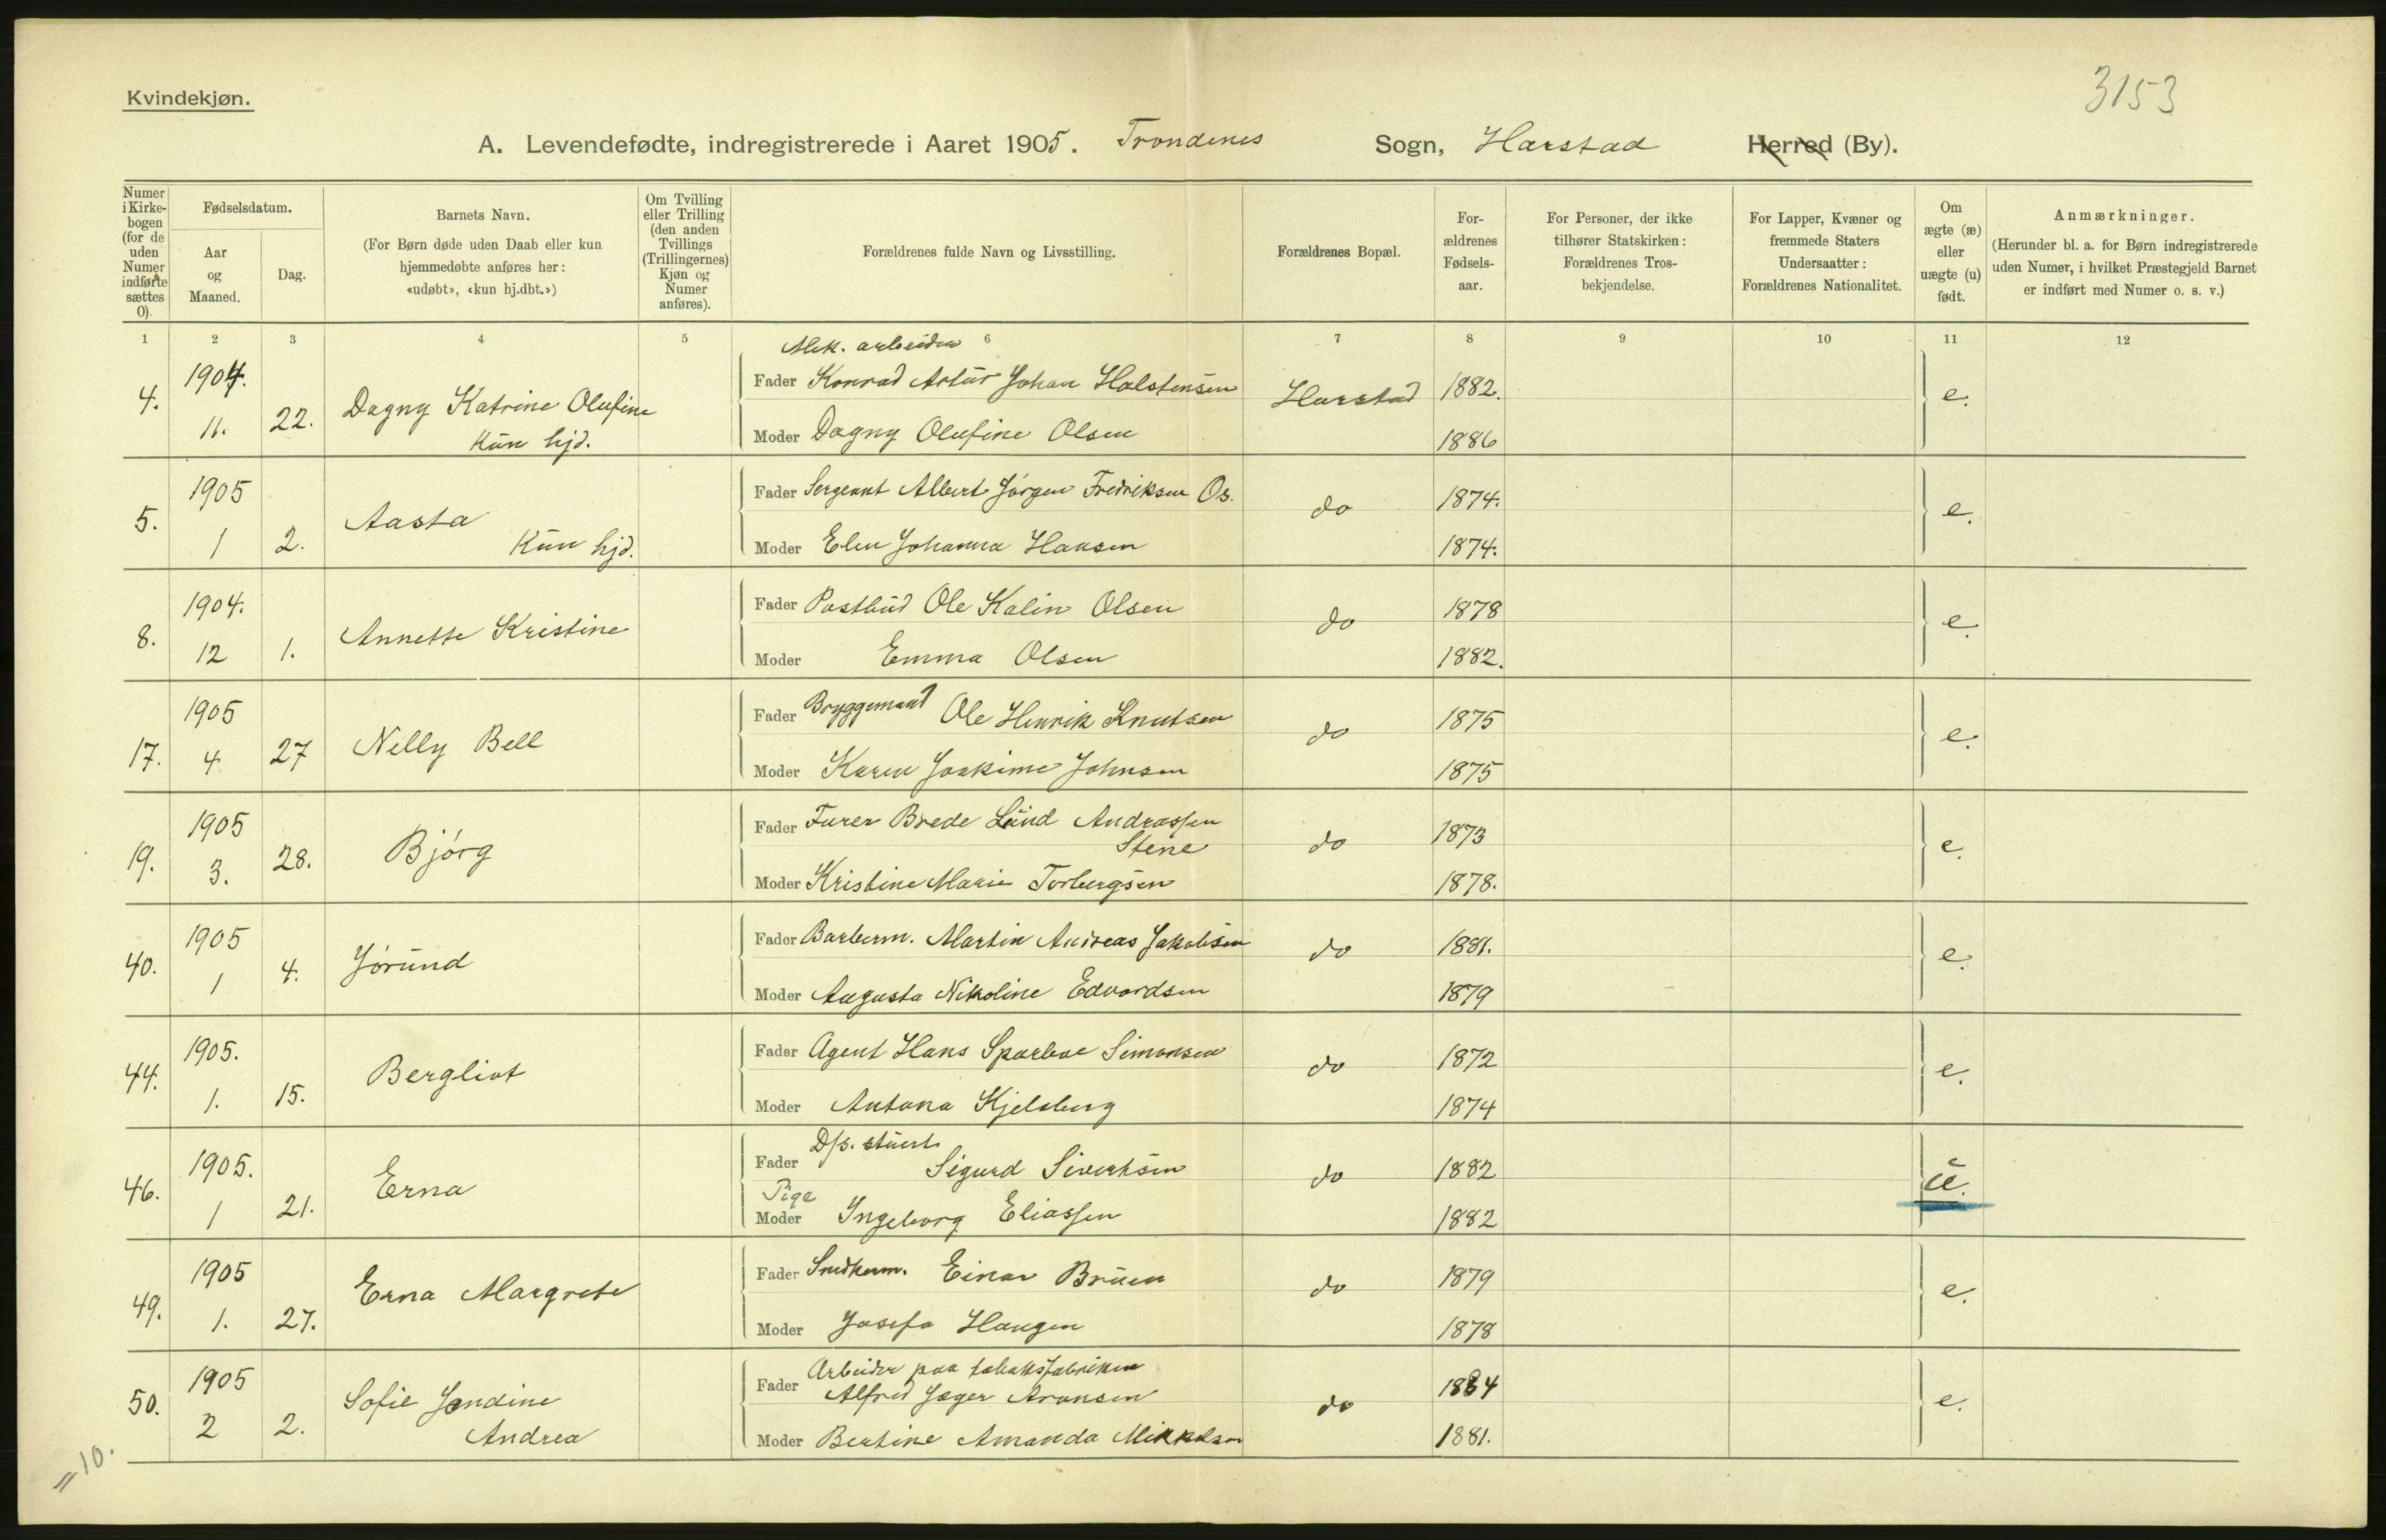 Kvindekjøn.
3153
A. Levendefødte, indregistrerede i Aaret 1905. Trondenes Sogn, Harstad Herred (By).
Numer i Kirke- bogen (for de uden Numer indførte sættes 0).
Fødselsdatum.
Aar og Maaned.
Dag.
Barnets Navn.
(For Børn døde uden Daab eller kun hjemmedøbte anføres her: «udøbt», «kun hj.dbt.»)
Om Tvilling eller Trilling (den anden Tvillings (Trillingernes) Kjøn og Numer anføres).
Forældrenes fulde Navn og Livsstilling.
Forældrenes Bopæl.
For- ældrenes Fødsels- aar.
For Personer, der ikke tilhører Statskirken: Forældrenes Tros- bekjendelse.
For Lapper, Kvæner og fremmede Staters Undersaatter: Forældrenes Nationalitet.
Om ægte (æ) eller uægte (u) født.
Anmærkninger.
(Herunder bl. a. for Børn indregistrerede uden Numer, i hvilket Præstegjeld Barnet er indført med Numer o. s. v.)
1 2 3 4 5 6 7 8 9 10 11 12
Mek. arbeider
4. 1904. 11. 22. Dagny Katrine Olufine
Kun hjd.
Fader Konrad Artur Johan Holstensen Harstad 1882. e.
Moder Dagny Olufine Olsen 1886
5. 1905 1 2. Aasta
Kun hjd.
Fader Sergeant Albert Jørgen Fredriksen Os. do 1874. e.
Moder Elen Johanna Hansen 1874.
8. 1904. 12 1. Annette Kristine
Fader Postbud Ole Kalin Olsen do 1878 e.
Moder Emma Olsen 1882.
17. 1905 4 27 Nelly Bell
Fader Bryggemand Ole Henrik Knutsen do 1875 e.
Moder Karen Joakime Johnsen 1875
19. 1905 3. 28. Bjørg
Fader Furer Brede Lund Andrassen
Stene do 1873 e.
Moder Kristine Marie Torbergsen 1878.
40. 1905 1 4. Jorund
Fader Barberm. Martin Andreas Jakobsen do 1881. e.
Moder Augusta Nikoline Edvardsen 1879
44. 1905. 1. 15. Bergliot
Fader Agent Hans Sparboe Simonsen do 1872 e.
Moder Antona Kjelsberg 1874
46. 1905. 1 21. Erna
D/s. stuert
Fader Sigurd Sivertsen do 1882 u.
Pige
Moder Ingeborg Eliassen 1882
49. 1905 1. 27. Erna Margrete
Fader Snedkerm. Einar Bruen do 1879 e.
Moder Josefa Haugen 1878
50. 1905 2 2. Sofie Jendine
Andrea
Arbeider paa tobaksfabriken
Fader Alfred Jæger Aronsen do 1884 e.
Moder Bertine Amanda Mikkelsen 1881.
= 10.